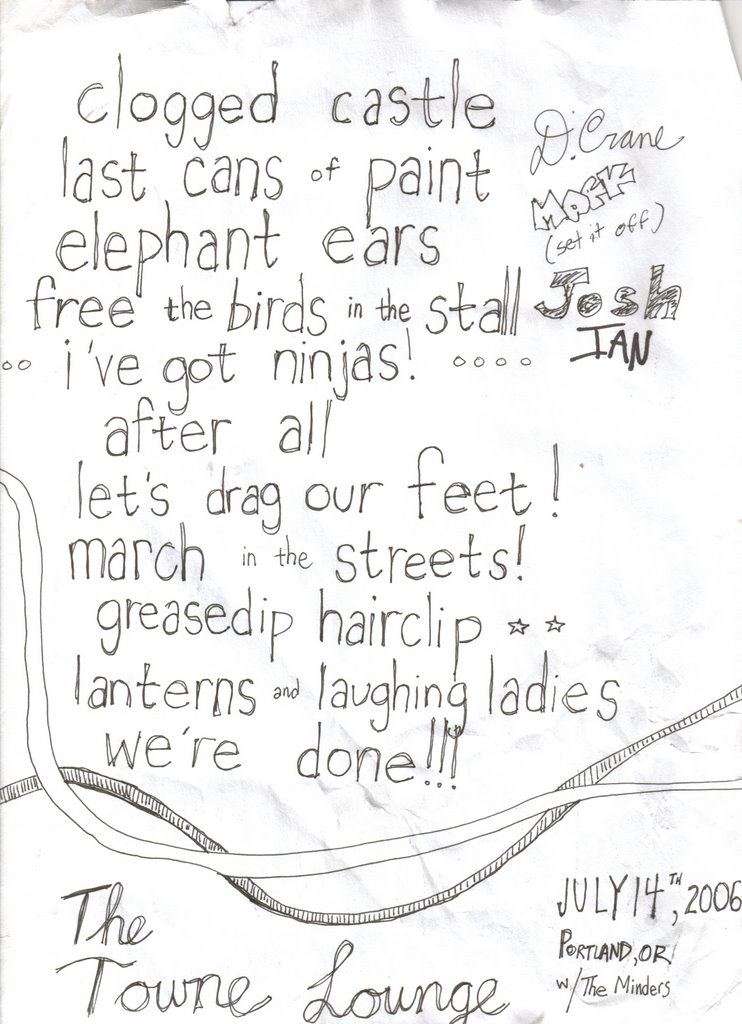 clogged castle
last cans of paint
elephant ears
free the birds in the stall
i've got ninjas!
after all
let's drag our feet!
march in the streets!
greasedip hairclip
lanterns and laughing ladies
we're done!!!
D. Crane
(set it off)
Josh
IAN
The
Towne Lounge
JULY 14TH, 2006
PORTLAND, OR
w/ The Minders